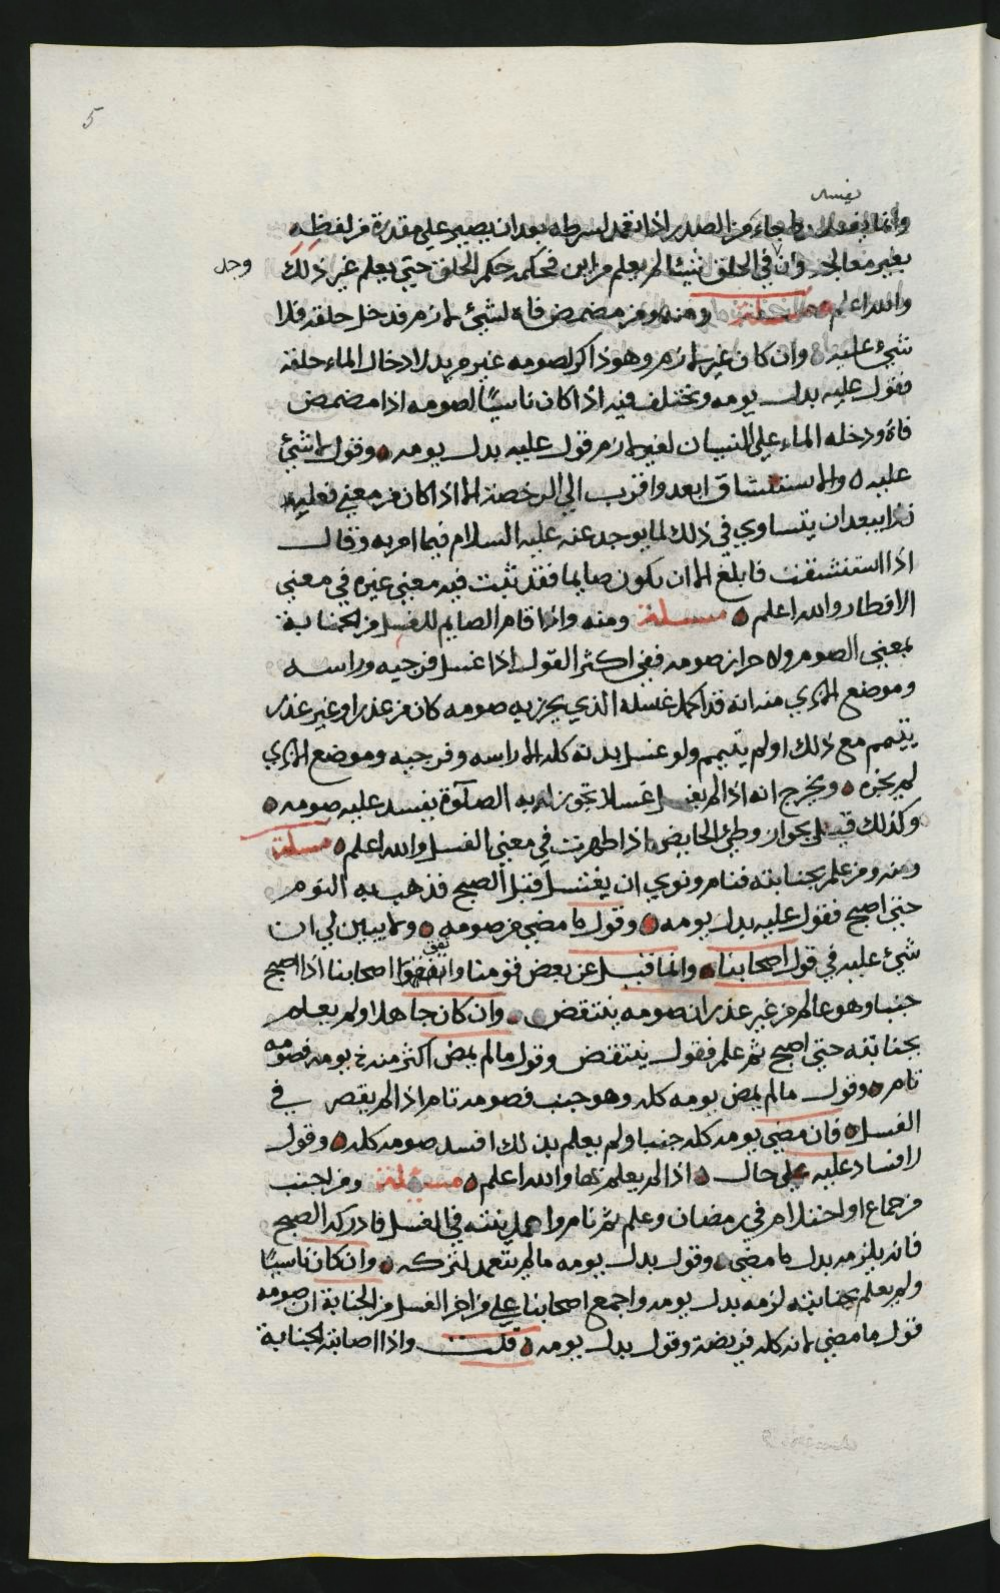 5
يفسد
وانما يفسد ما جاء من الصدر اذا تعمد لسرطه بعد ان يصير على مقدرة من لفظه
بغير معالجة وان في الحلق شيئا لم يعلم من اين فحكمه حكم الحلق حتى يعلم غير ذلك
وجد
والله اعلم مسئلة ومنه ومن مضمض فاه لشيء لازم فدخل حلقه فلا
شيء عليه وان كان غير لازم وهو ذاكر لصومه غير مريد لادخال الماء حلقه
فقول عليه بدل يومه ويختلف فيه اذا كان ناسيا لصومه اذا مضمض
فاه ودخله الماء على النسيان لغير لازم قول عليه بدل يومه وقول لا شيء
عليه والاستنشاق ابعد واقرب الى الرخصة الا اذا كان من معنى فعليه
يبعد ان يتساوي في ذلك لما يوجد عنه عليه السلام فيما امر به وقال
اذا استنشقت فابلغ الا ان تكون صايما فقد ثبت فيه معنى غيره في معنى
الافطار والله اعلم مسئلة ومنه واذا قام الصايم للغسل من الجنابة
بمعنى الصوم ولاحراز صومه ففي اكثر القول اذا غسل فرجيه وراسه
وموضع الاذي منه انه قد اكمل غسله الذي يجزيه صومه كان من عذر او غير عذر
يتيمم مع ذلك او لم يتيمم ولو غسل بدنه كله الا راسه وفرجيه وموضع الاذي
لم يجزه ويخرج انه اذا لم يغسل غسلا تجوز له به الصلوة يفسد عليه صومه
وكذلك قيل بجواز وطئ الحايض اذا طهرت في معنى الغسل والله اعلم مسئلة
ومنه ومن علم بجنابته فنام ونوي ان يغتسل قبل الصبح فذهب به النوم
حتى اصبح فقول عليه بدل يومه وقول ما مضى من صومه ولا يبين لي ان
شيء عليه في قول اصحابنا وانما قيل عن بعض قومنا واتفقوا اصحابنا اذا اصبح
جنبا وهو عالم من غير عذر ان صومه ينتقض وان كان جاهلا ولم يعلم
بجنابته حتى اصبح ثم علم فقول ينتقض وقول ما لم يمض اكثر من يومه فصومه
تام وقول ما لم يمض يومه كله وهو جنب فصومه تام اذا لم يقصر في
الغسل فان مضى يومه كله جنبا ولم يعلم بذلك افسد صومه كله وقول
لا فساد عليه على حال اذا لم يعلم بها والله اعلم مسئلة ومن اجنب
من جماع او احتلام في رمضان وعلم ثم نام واهمل نيته في الغسل فادركه الصبح
فانه يلزمه بدل ما مضى وقول بدل يومه ما لم يتعمد لتركه وان كان ناسيا
ولم يعلم بجنابته لزمه بدل يومه واجمع اصحابنا على من اخر الغسل من الجنابة ان صومه
قول ما مضى لانه كله فريضة وقول بدل يومه قلت واذا اصابته الجنابة